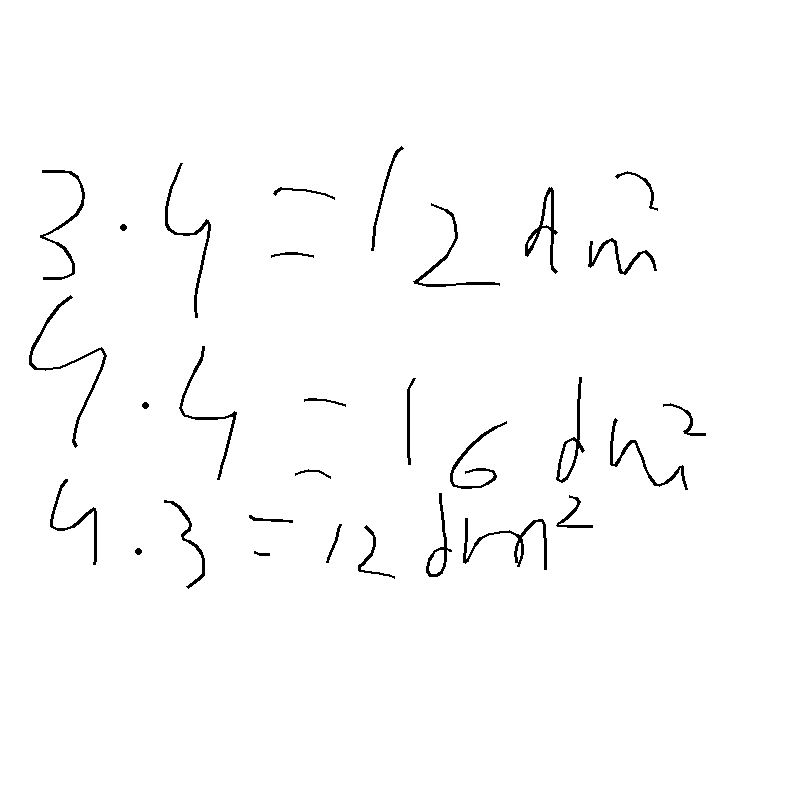 3 · 4 = 12 dm²
4 · 4 = 16 dm²
4 · 3 = 12 dm²